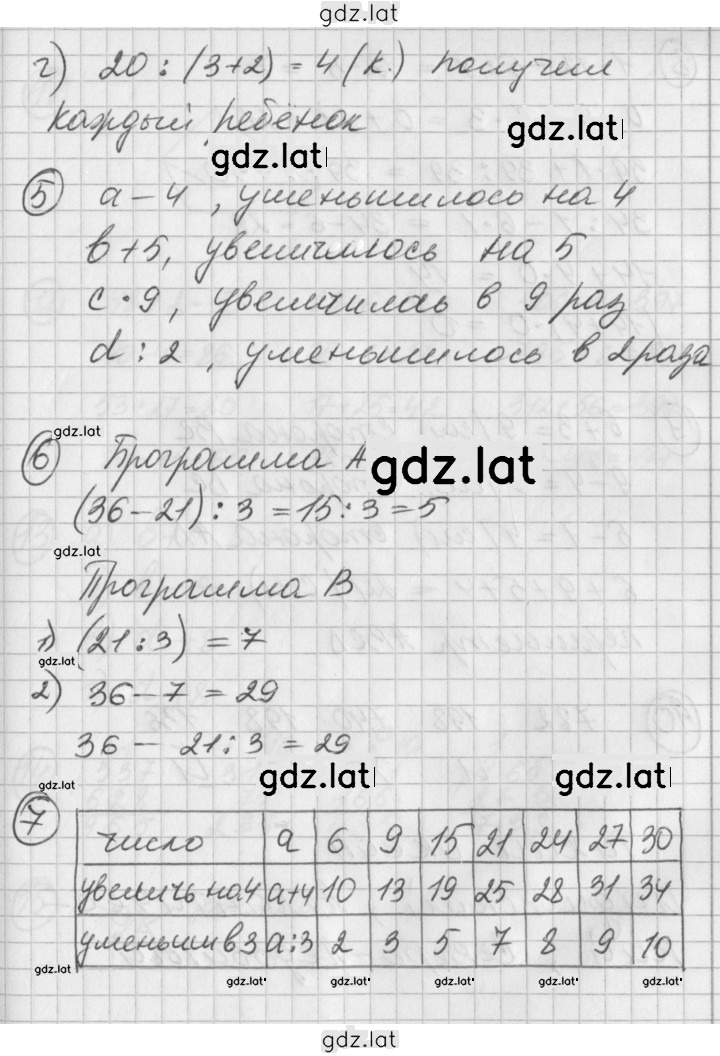 gdz.lat
г) 20 : (3+2) = 4 (к.) получил
каждый ребёнок
gdz.lat
gdz.lat
5 a - 4, уменьшилось на 4
b + 5, увеличилось на 5
c · 9, увеличилась в 9 раз
d : 2, уменьшилось в 2 раза
gdz.lat
6 Программа A
gdz.lat
(36-21) : 3 = 15 : 3 = 5
gdz.lat
Программа B
1) (21 : 3) = 7
gdz.lat
2) 36 - 7 = 29
36 - 21 : 3 = 29
gdz.lat gdz.lat
gdz.lat
7 число a 6 9 15 21 24 27 30
увеличь на 4 a+4 10 13 19 25 28 31 34
уменьши в 3 a:3 2 3 5 7 8 9 10
gdz.lat
gdz.lat gdz.lat gdz.lat gdz.lat
gdz.lat